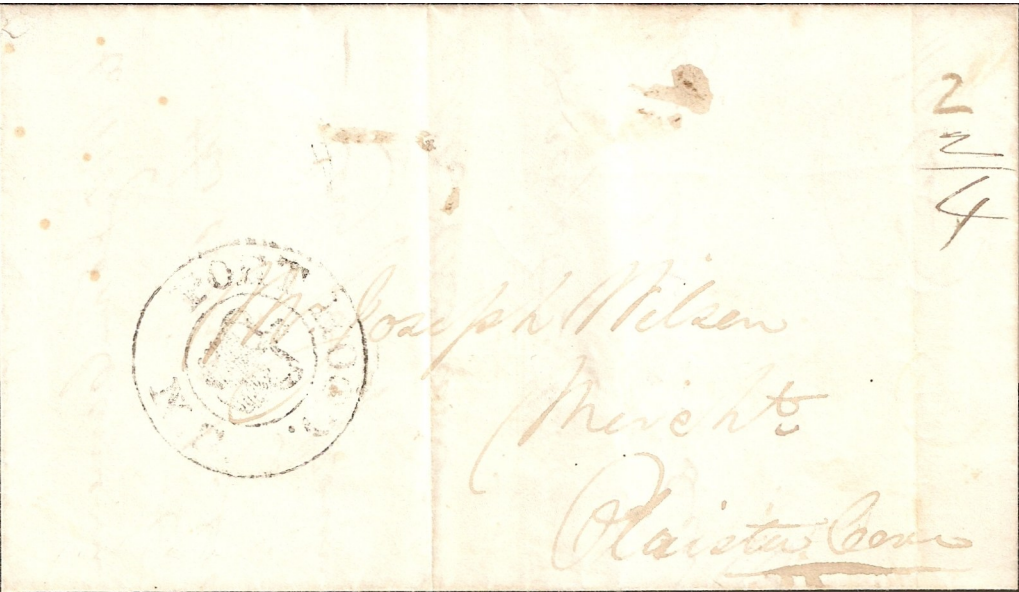 2
2
4
POST
Mr Joseph Wilson
Mercht
Plaister Cove